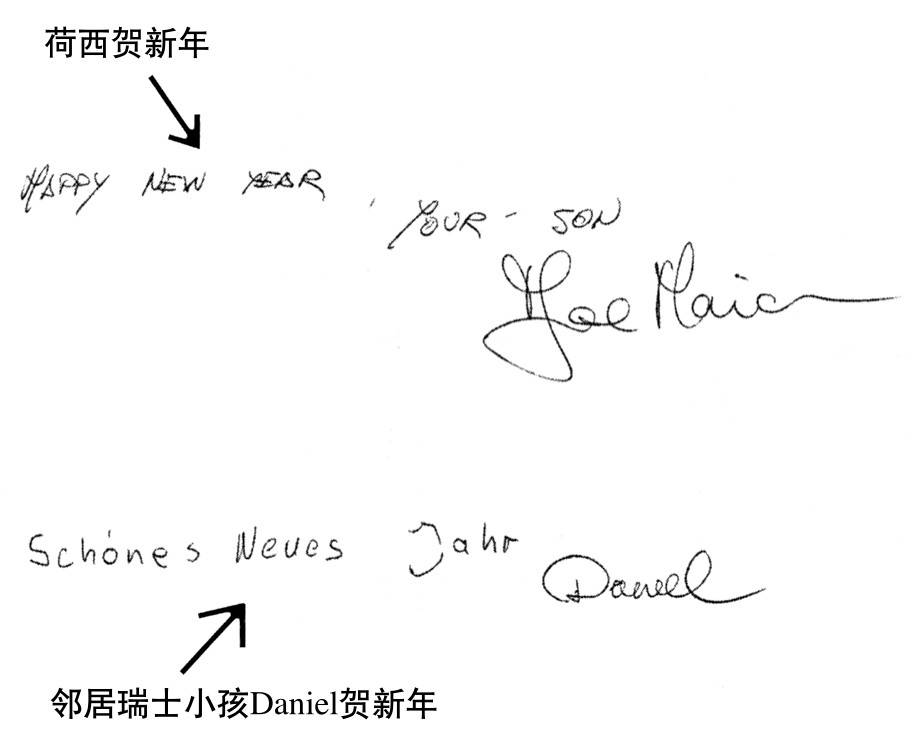 荷西贺新年
HAPPY NEW YEAR.
YOUR - SON
Schönes Neues Jahr
Daniel
邻居瑞士小孩Daniel贺新年